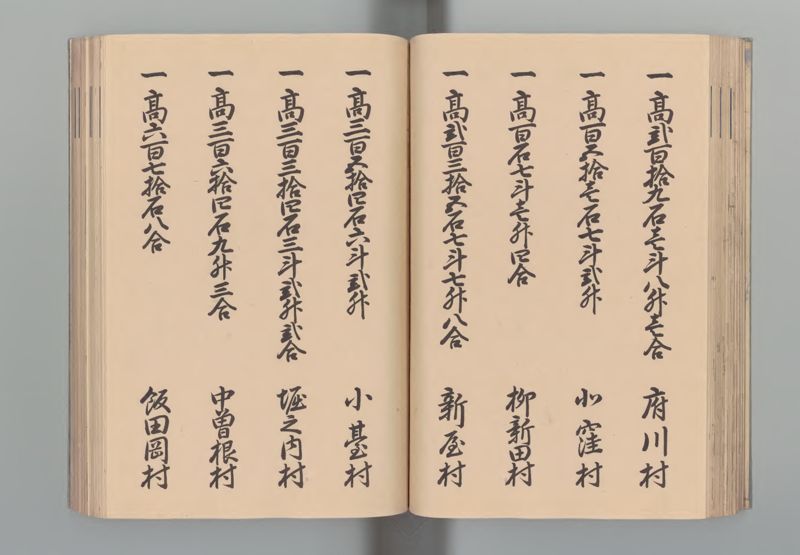 一高弐百拾九石壱斗八升壱合 府川村
一高百五拾壱石七斗弐升 北窪村
一高百石七斗壱升四合 柳新田村
一高弐百三拾五石七斗七升八合 新屋村
一高三百五拾四石六斗弐升 小臺村
一高三百三拾四石三斗弐升弐合 堀之内村
一高三百六拾四石九升三合 中曽根村
一高六百七拾石八合 飯田岡村